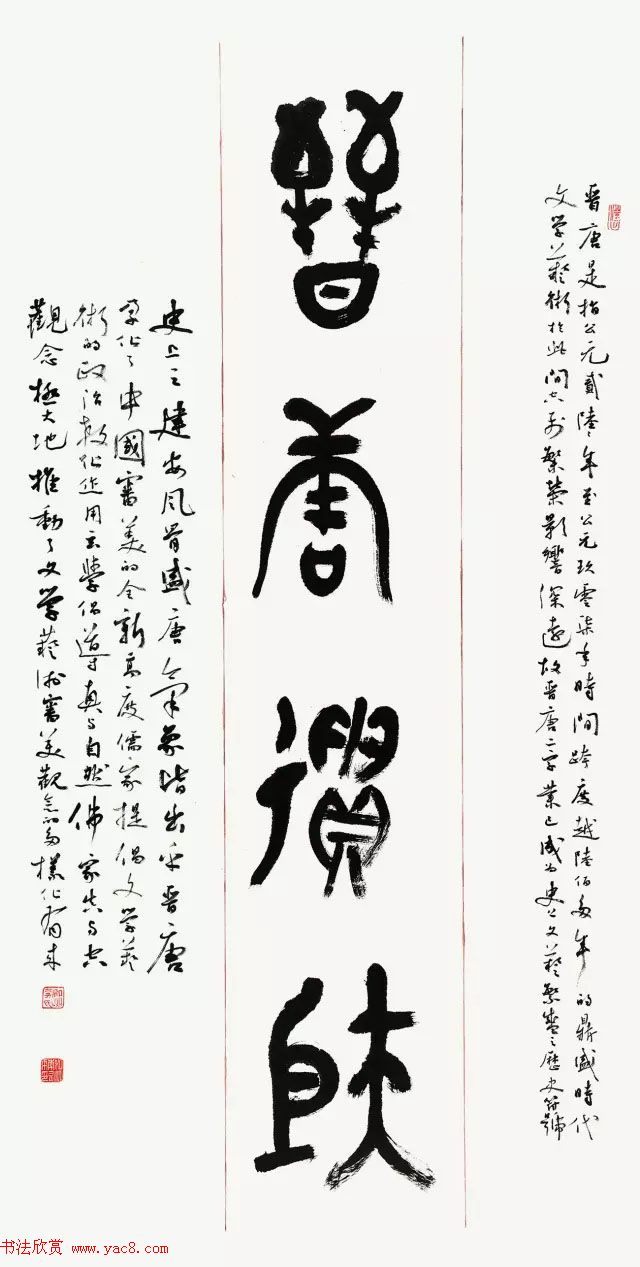 晋唐是指公元貳陸々年至公元玖零柒年時間跨度越陸佰多年的鼎盛時代
文学藝術於此間空前繁榮影響深遠故晋唐二字業已成为史上文藝繁盛之歷史符號
晉唐遺
史上之建安風骨盛唐氣象皆出乎晋唐
孕化了中國審美的全新高度儒家提倡文学藝
術的政治教化作用玄學倡導真与自然佛家与空
觀念極大地推動了文学藝術審美觀念的多樣化
书法欣赏 www.yac8.com